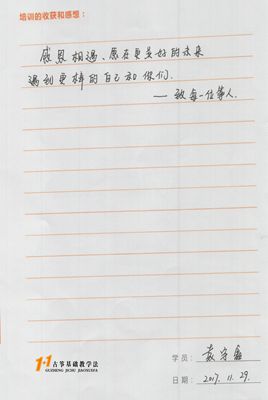 培训的收获和感想：
感恩相遇、愿在更美好的未来
遇到更棒的自己和你们.
——致每一位筝人.
1+1 古筝基础教学法
GUZHENG JICHU JIAOXUEFA
学员：袁宇鑫
日期：2017.11.29.